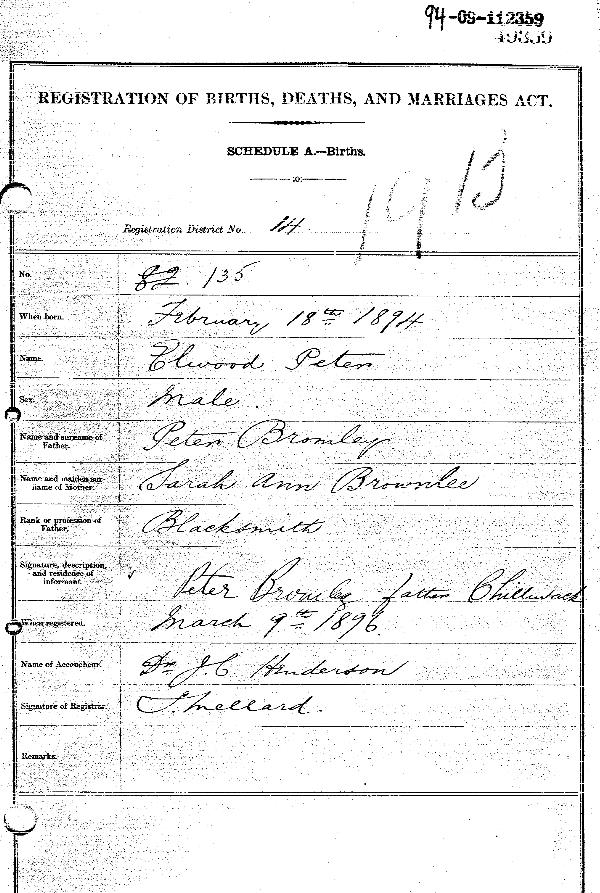 94-09-112359
REGISTRATION OF BIRTHS, DEATHS, AND MARRIAGES ACT.
SCHEDULE A.—Births.
1913
Registration District No. 14
No. 135
When born. February 18th 1894
Name. Elwood Peter
Sex. Male.
Name and surname of Father. Peter Bromley
Name and maiden surname of Mother. Sarah Ann Brownlee
Rank or profession of Father. Blacksmith
Signature, description, and residence of informant. Peter Bromley father Chilliwack
When registered. March 9th 1896
Name of Accoucheur. Dr J. C. Henderson
Signature of Registrar. S. Mellard.
Remarks.